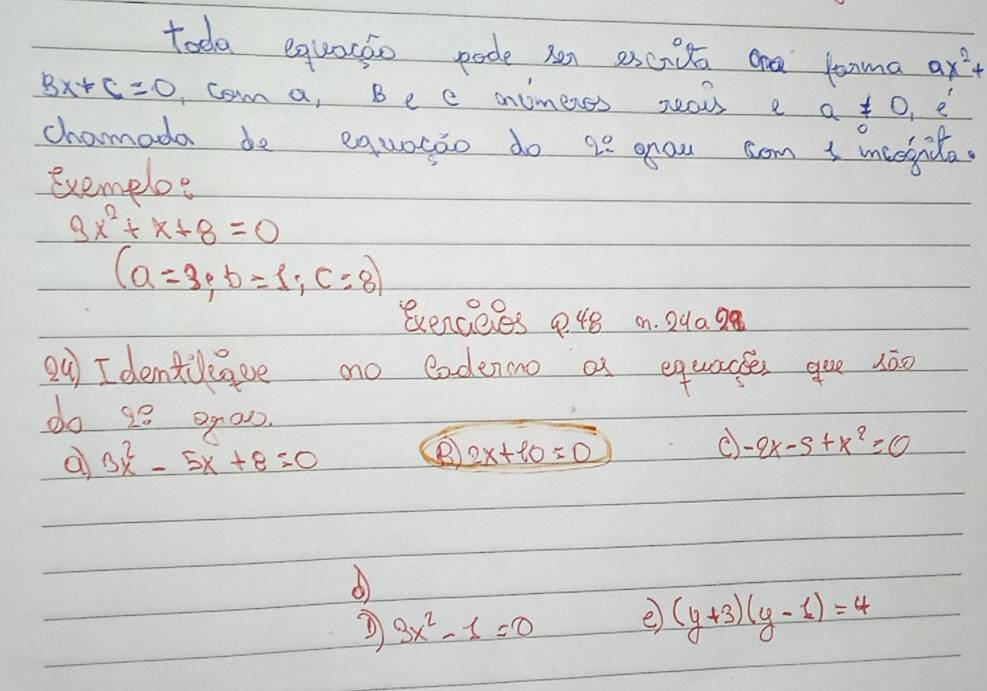 toda equação pode ser escrita na forma ax²+
Bx+C=0, com a, B e C números reais e a ≠ 0, é
chamada de equação do 2º grau com 1 incógnita.
Exemplo:
3x² + x + 8 = 0
(a=3; b=1; c=8)
Exercícios p.48 n.24 a 28
24) Identifique no Caderno as equações que são
do 2º grau.
a) 3x² - 5x + 8 = 0 B) 2x+10=0 C) -2x-5+x²=0
d)
D) 3x² - 1 = 0 e) (y+3)(y-1)=4